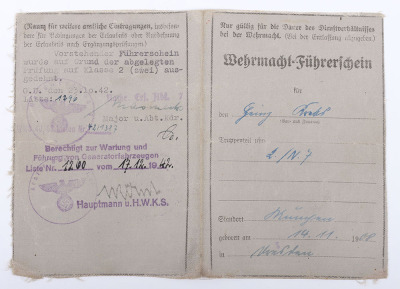 (Raum für weitere amtliche Eintragungen, insbesondere
für Belehrungen der
Erlaubnis oder nach Ergänzungsprüfungen)
Vorstehender Führerschein
wurde auf Grund der abgelegten
Prüfung auf Klasse 2 (zwei) aus-
gedehnt.
O.U. den 23.10.42.
Liste: 1290
Major u. Abt. Kdr.
Berechtigt zur Wartung und
Führung von Generatorfahrzeugen
Liste Nr. 1290 vom 17.12.1942.
Hauptmann u. H.W.K.S.
Nur gültig für die Dauer des Dienstverhältnisses
bei der Wehrmacht. (Bei der Entlassung abzugeben.)
Wehrmacht-Führerschein
für
den Georg
(Vor- und Zuname)
Truppenteil 2./N. 7
Standort München
geboren am 14. 11. 1908
in